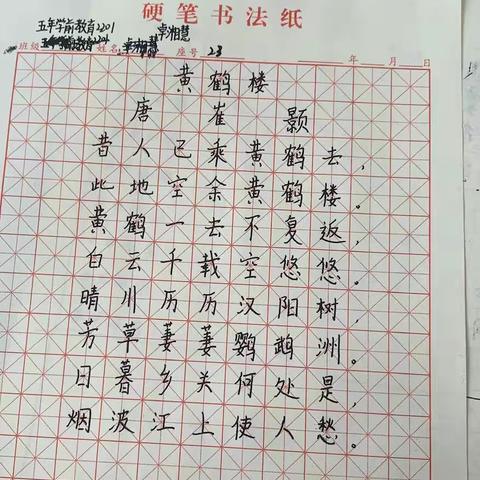 硬笔书法纸
五年学前教育2201 卓湘慧
班级 姓名 座号 23 年 月 日
黄鹤楼
唐 崔颢
昔人已乘黄鹤去，
此地空余黄鹤楼。
黄鹤一去不复返，
白云千载空悠悠。
晴川历历汉阳树，
芳草萋萋鹦鹉洲。
日暮乡关何处是，
烟波江上使人愁。